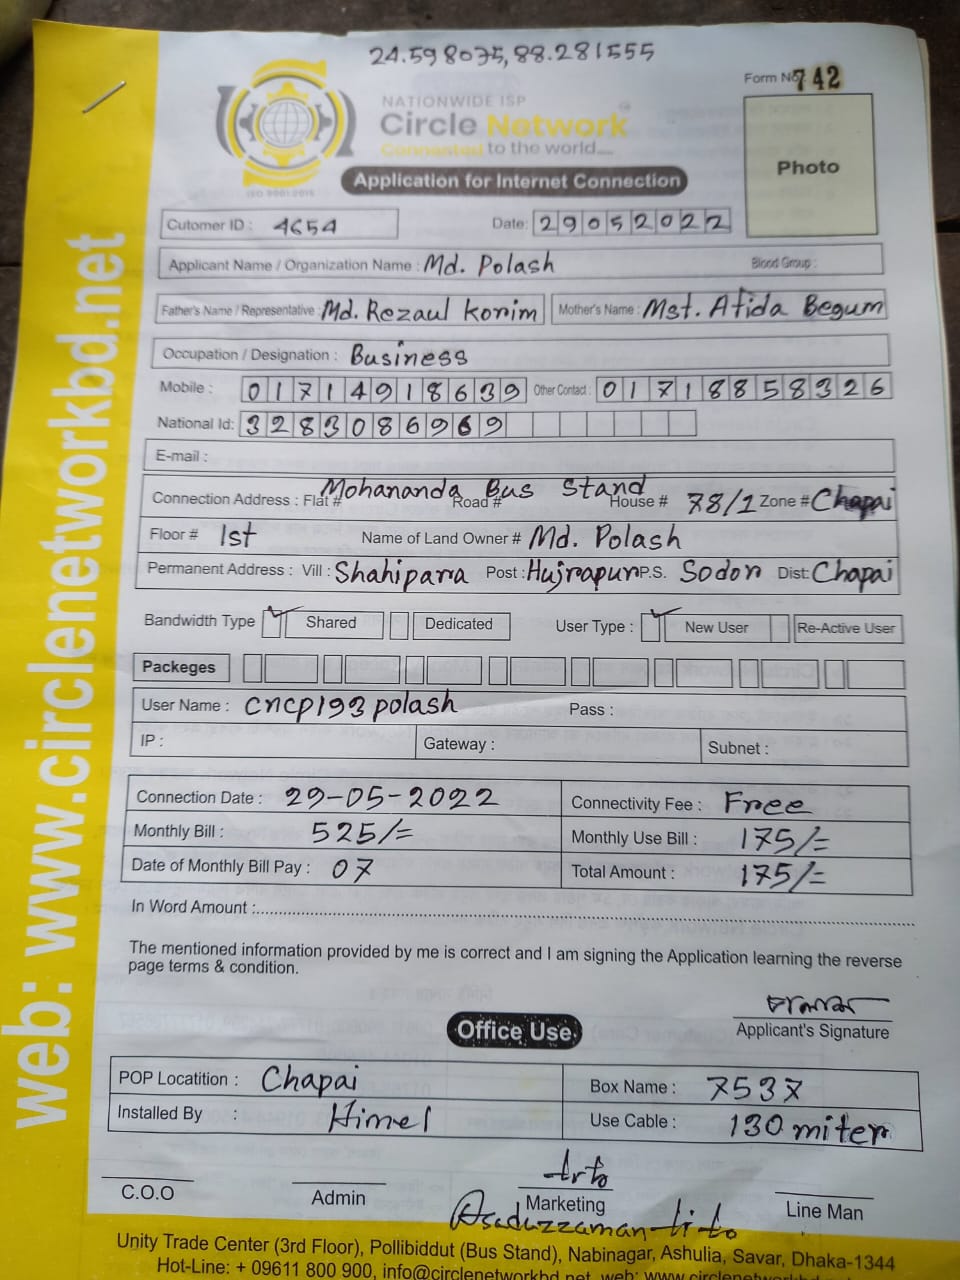 24.598075,88.281555
Form No. 742
NATIONWIDE ISP
Circle Network
Connected to the world....
ISO 9001:2015
Photo
Application for Internet Connection
Cutomer ID : 4654 Date: 29052022
Applicant Name / Organization Name : Md. Polash Blood Group :
Father's Name / Representative : Md. Rezaul Korim Mother's Name : Mst. Afida Begum
Occupation / Designation : Business
Mobile : 01714918639 Other Contact : 01718858326
National Id: 3283086969
E-mail :
Mohananda Bus Stand
Connection Address : Flat # Road # House # 78/1 Zone # Chapai
Floor # 1st Name of Land Owner # Md. Polash
Permanent Address : Vill : Shahipara Post : Hujrapur P.S. Sodor Dist: Chapai
Bandwidth Type Shared Dedicated User Type : New User Re-Active User
Packeges
User Name : cncp193polash Pass :
IP : Gateway : Subnet :
Connection Date : 29-05-2022 Connectivity Fee : Free
Monthly Bill : 525/= Monthly Use Bill : 175/=
Date of Monthly Bill Pay : 07 Total Amount : 175/=
In Word Amount :
The mentioned information provided by me is correct and I am signing the Application learning the reverse
page terms & condition.
Applicant's Signature
Office Use
POP Locatition : Chapai Box Name : 7537
Installed By : Himel Use Cable : 130 miter
C.O.O Admin Marketing Line Man
Asaduzzaman tito
Unity Trade Center (3rd Floor), Pollibiddut (Bus Stand), Nabinagar, Ashulia, Savar, Dhaka-1344
Hot-Line: + 09611 800 900, info@circlenetworkbd.net, web: www.circlenetworkbd
web: www.circlenetworkbd.net